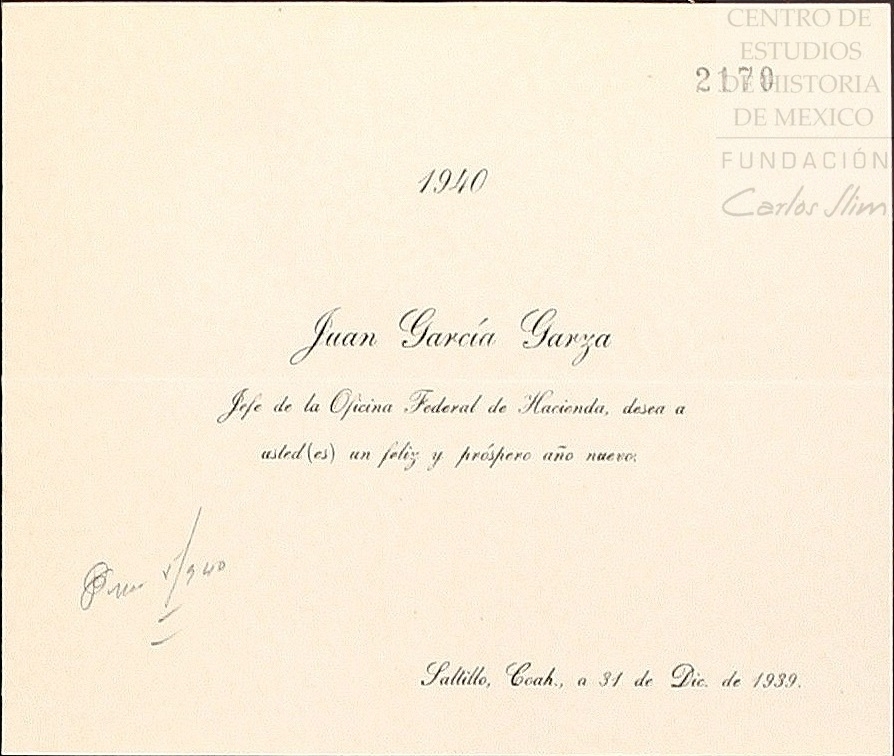 CENTRO DE
ESTUDIOS
DE HISTORIA
DE MEXICO
FUNDACIÓN
Carlos Slim
2170
1940
Juan García Garza
Jefe de la Oficina Federal de Hacienda, desea a
usted(es) un feliz y próspero año nuevo.
Saltillo, Coah., a 31 de Dic. de 1939.